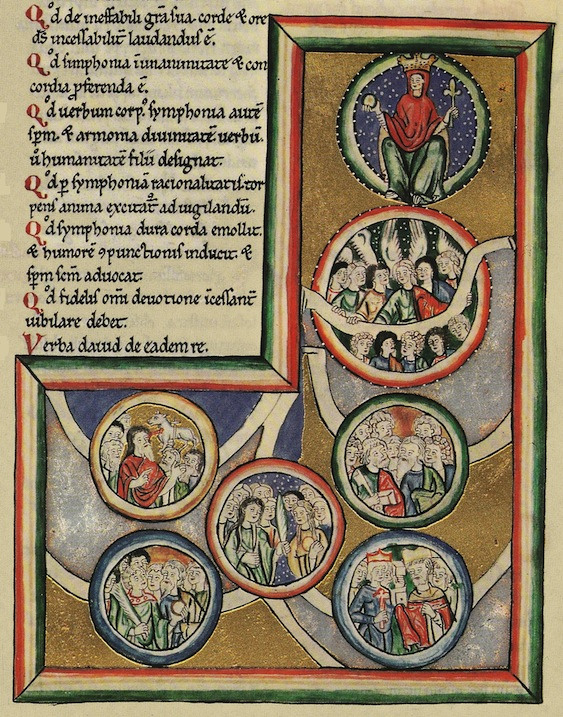 Qd̵ de ineffabili gr̄a sua. corde & ore
ds̄ incessabilit̄ laudandus ē.
Qd̵ simphonia ī unanimitate & con
cordia p̄ferenda ē.
Qd̵ uerbum corpꝰ symphonia autē
sp̄m. & armonia diuinitatē uerbū.
ū humanitatē filii designat.
Qd̵ ꝑ symphoniā racionalitatis tor
pens anima excitat᷑ ad uigilandū.
Qd̵ symphonia dura corda emollit.
& humorē ꝯpunctionis inducit. &
sp̄m sc̄m aduocat.
Qd̵ fidelis omī deuotione īcessant̄
iubilare debet.
Verba dauid de eadem re.